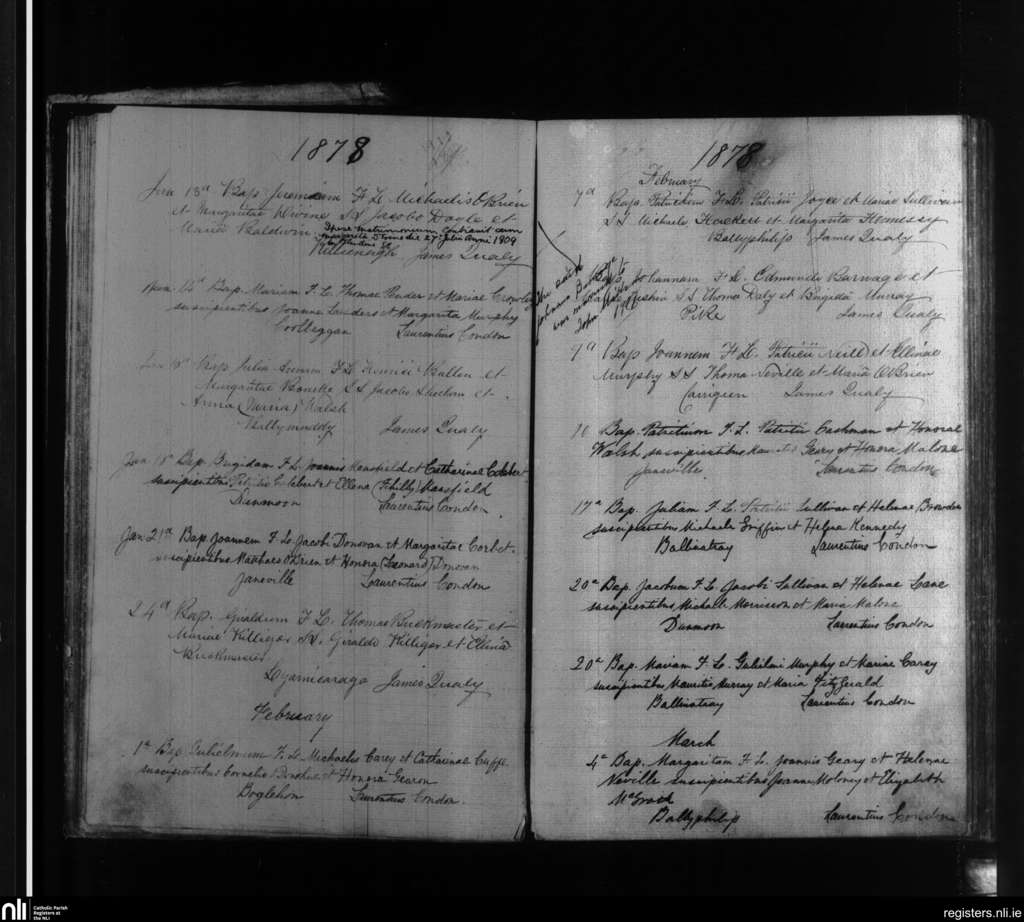 1878
Jan 13a Bap Jeremiam F L Michaelis O'Brien
et Margaritae Dwone SS Jacobo Doyle et
Maria Baldwin Ipse matrimonium contraxit cum
Margarita die 27a Julii Anni 1909
Killeenagh James Qualy
14a Bap. Mariam F. L. Thomae Pender et Mariae Crowley
suscipientibus Joanne Landers et Margarita Murphy
Coolbeggan Laurentius Condon
Bap Julia F L et
Margaritae SS Jacobo Sheehan et
Anna (Maria) Walsh
Ballymoddy James Qualy
Jan 18a Bap. Brigidam F. L. Joannis Mansfield et Catharinae Colbert
suscipientibus Colbert et Ellena (Philly) Mansfield
Dunmoon Laurentius Condon
Jan 21a Bap Joannem F L. Jacobi Donovan et Margaritae Corbet.
suscipientibus Matthaeo O'Brien et Honora (Leonard) Donovan
Janeville Laurentius Condon
24a Bap. Giraldum F L. Thomae Buckmaster et
Mariae Killigar SS. Giraldo Killigar et Ellena
Buckmaster
Lyarnicaraga James Qualy
February
1a Bap Gulielmum F. L. Michaelis Carey et Catharinae Cuffe
suscipientibus Cornelio Donohue et Honora Gearon
Boglehon Laurentius Condon.
1878
February
7a Bap. Patricium F. L. Patricii Joyce et Mariae Sullivan
SS Michaele Hackett et Margarita Hennessy
Ballyphilip James Qualy
The said
Johannes
was married to
John
Bap. Johannam F L. Edmundi Barnage et
SS Thoma Daly et Brigida Murray
Pike James Qualy
9a Bap Joannem F L. Patricii Neill et Ellenae
Murphy SS Thoma Neville et Maria O'Brien
Carrigeen James Qualy
10 Bap. Patritium F. L. Patritii Cashman et Honorae
Walsh suscipientibus Geary et Honora Malone
Janeville Laurentius Condon
17a Bap. Juliam F. L. Patricii Sullivan et Helenae Browden
suscipientibus Michaele Griffin et Helena Kennedy
Ballinatray Laurentius Condon
20a Bap. Jacobum F L. Jacobi Sullivan et Helenae Lane
suscipientibus Michaele Morrisson et Maria Malone
Dunmoon Laurentius Condon
20a Bap. Mariam F L. Gulielmi Murphy et Mariae Carey
suscipientibus Mauritio Murray et Maria FitzGerald
Ballinatray Laurentius Condon
March
4a Bap. Margaritam F L. Joannis Geary et Helenae
Neville suscipientibus Joanne Moloney et Elizabeth
McGrath
Ballyphilip Laurentius Condon
nli Catholic Parish
Registers at
the NLI
registers.nli.ie